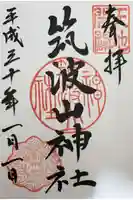 奉拝
筑波山神社
平成三十年一月一日